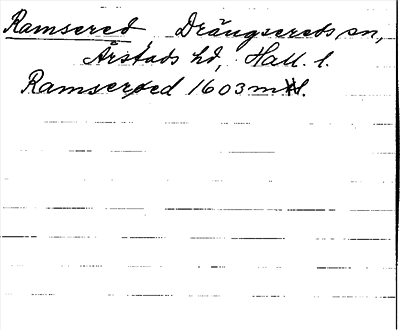 Ramsered, Drängsereds sn,
Årstads hd, Hall. l.
Ramserød 1603 mtl.